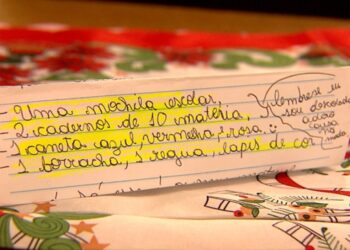 Uma mochila escolar,
2 cadernos de 10 matéria,
1 caneta azul, vermelha e rosa.
1 borracha, 1 regua, lapis de cor
lembrese eu
sou